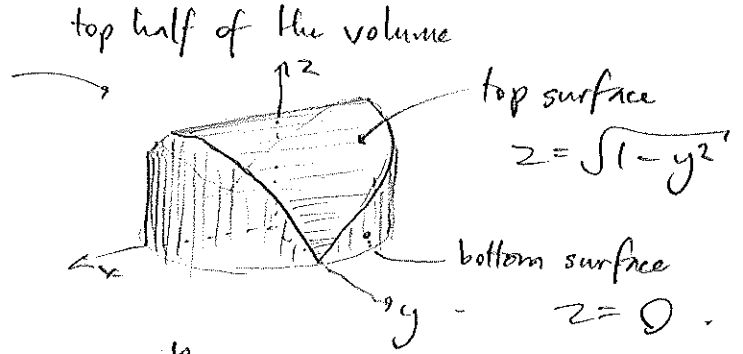 top half of the volume
z
top surface
z = √(1 - y²)
x
bottom surface
y
z = 0 .